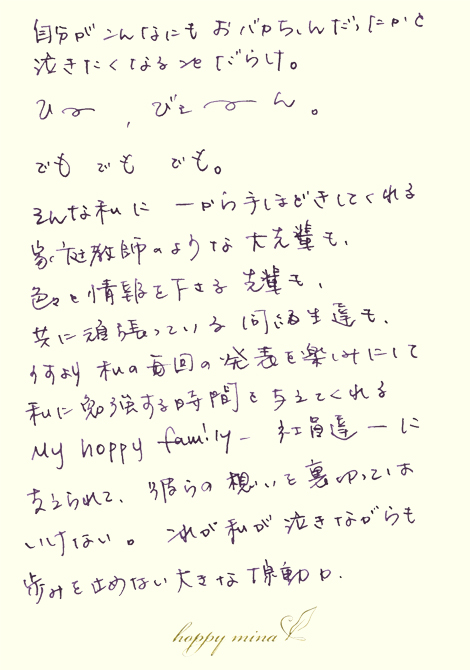 自分がこんなにも おバカちゃんだったかと
泣きたくなることだらけ。
ひー、びぇーーん。
でも でも でも。
そんな私に 一から手ほどきしてくれる
家庭教師のような 大先輩も、
色々と情報を下さる 先輩も、
共に頑張っている 同級生達も、
何より 私の毎回の発表を楽しみにして
私に勉強する時間を与えてくれる
My hoppy family 社員達に
支えられて、彼らの想いを裏切っては
いけない。これが私が泣きながらも
歩みを止めない大きな原動力。
hoppy mina